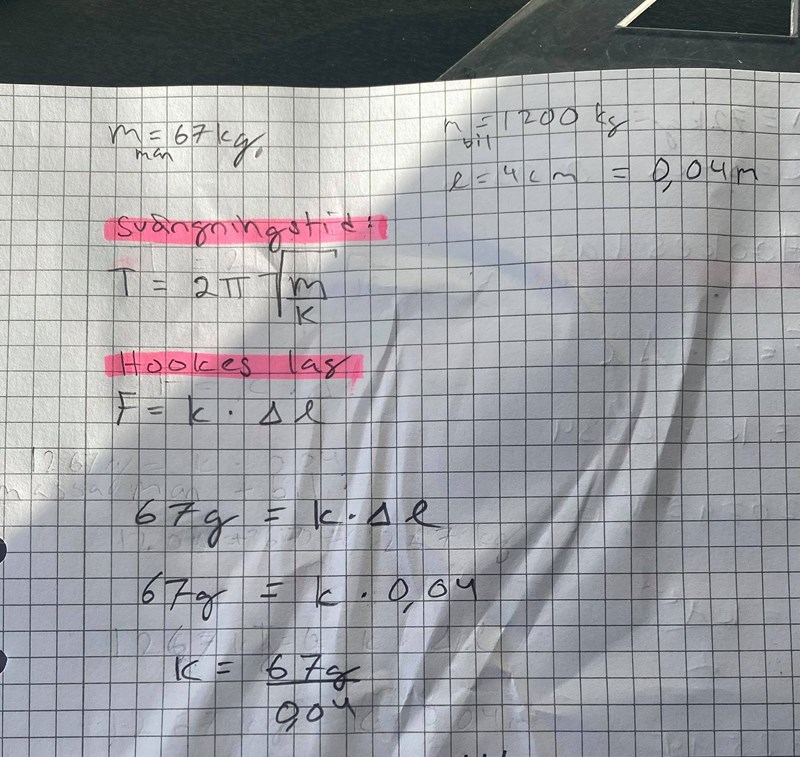 m man = 67 kg.
m bil = 1200 kg
l = 4 cm = 0,04 m
Svängningstid:
T = 2π √(m/k)
Hookes lag
F = k · Δl
67g = k · Δl
67g = k · 0,04
k = 67g / 0,04